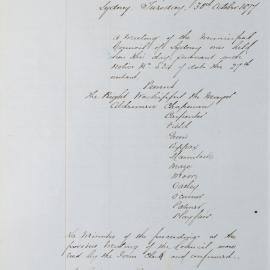 Sydney Tuesday, 30th October 1877
A Meeting of the Municipal
Council of Sydney was held
on this day, pursuant with
Notice No. 524 of date the 27th
instant.
Present
The Right Worshipful the Mayor
Aldermen Chapman
Carpenter
Field
Green
Kippax
Hammond
Moore
Oatley
O'Connor
Palmer
Playfair
The Minutes of the proceedings at the
previous Meeting of the Council were
read by the Town Clerk and confirmed